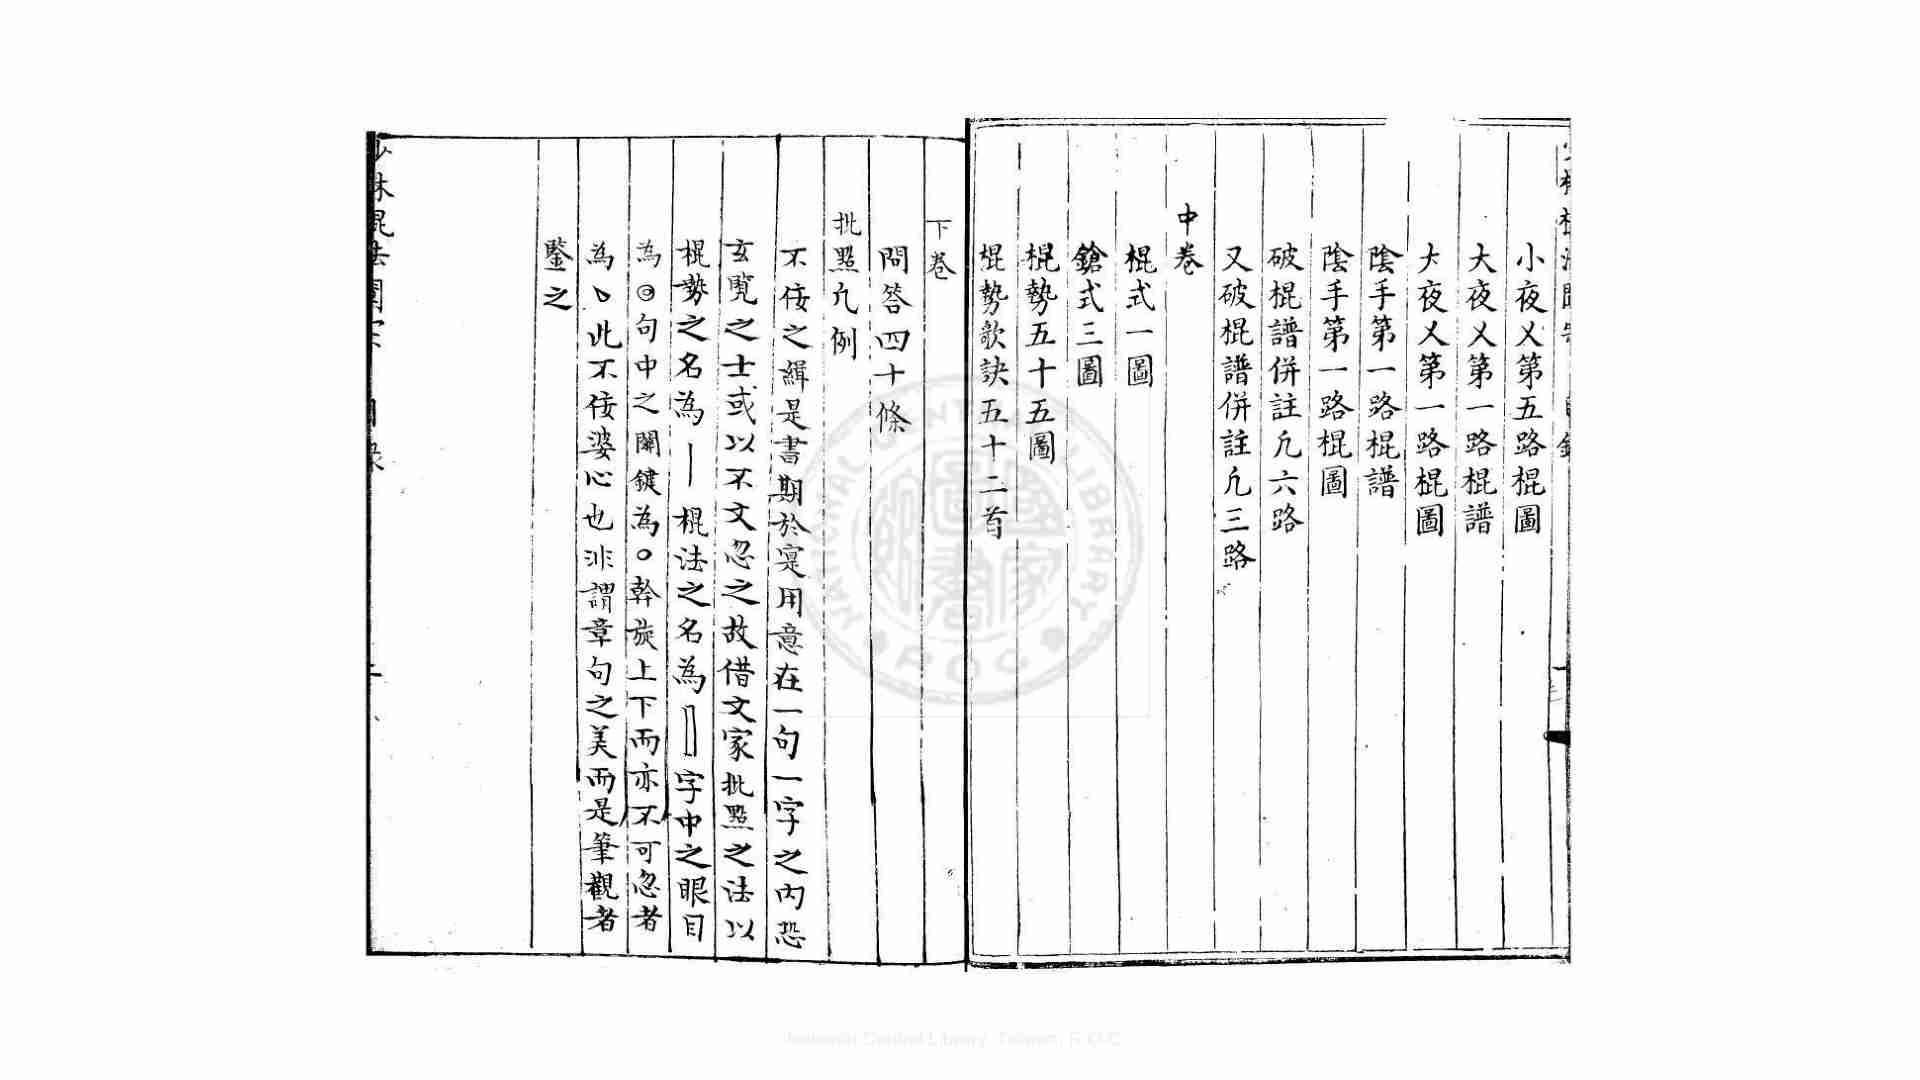 小夜乂第五路棍圖
大夜乂第一路棍譜
大夜乂第一路棍圖
陰手第一路棍譜
陰手第一路棍圖
破棍譜併註凢六路
又破棍譜併註凢三路
中卷
棍式一圖
鎗式三圖
棍勢五十五圖
棍勢歌訣五十二首
下卷
問答四十條
批點凢例
不佞之緝是書期於寔用意在一句一字之內恐
玄覽之士或以不文忽之故借文家批點之法以
棍勢之名為｜棍法之名為▯字中之眼目
為◎句中之關鍵為○斡旋上下而亦不可忽者
為丶此不佞婆心也非謂章句之美而是筆觀者
鑒之
少林棍法闡宗 目錄
NATIONAL CENTRAL LIBRARY
ROC
國家圖書館
National Central Library, Taiwan, R.O.C